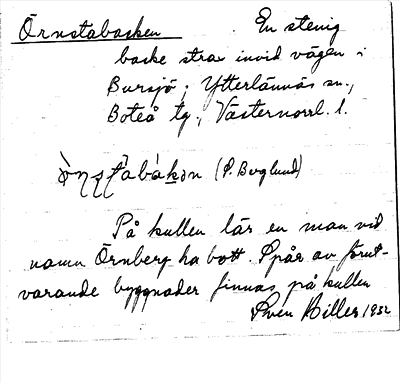 Örnstabacken . En stenig
backe strax invid vägen i
Bursjö, Ytterlännäs sn.,
Boteå tg., Västernorrl. l.
(P. Berglund)
På kullen lär en man vid
namn Örnberg ha bott. Spår av förut-
varande byggnader finnas på kullen
Sven Hiller 1932